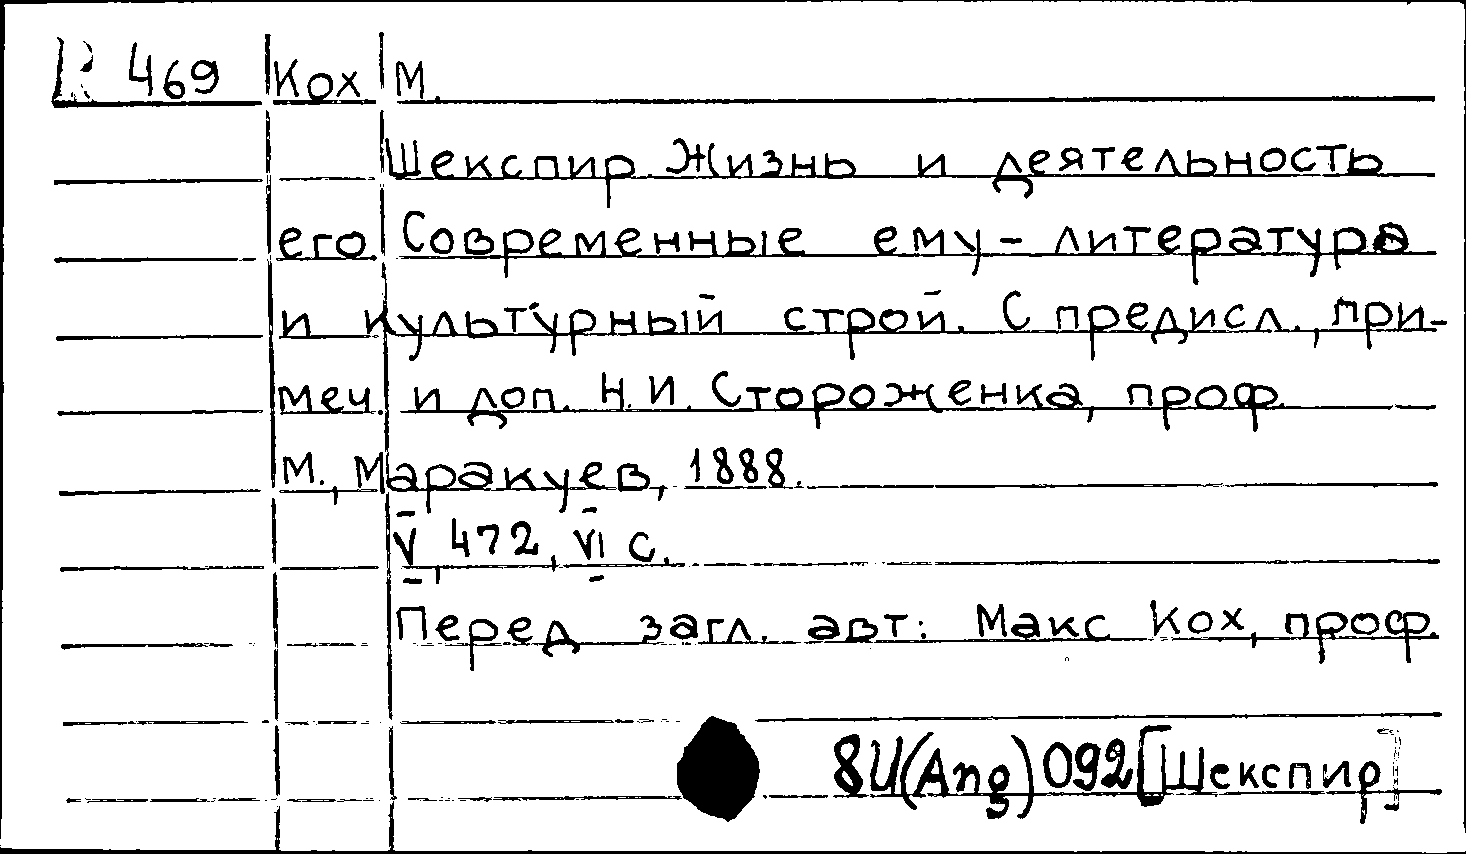 469 Кох М.
Шекспир. Жизнь и деятельность
его. Современные ему - литература
и культурный строй. С предисл., при-
меч. и доп. Н. И. Стороженка, проф.
М., Маракуев, 1888.
V, 472, VI с.
Перед загл. авт: Макс Кох, проф.
8И(Ang)092[Шекспир]